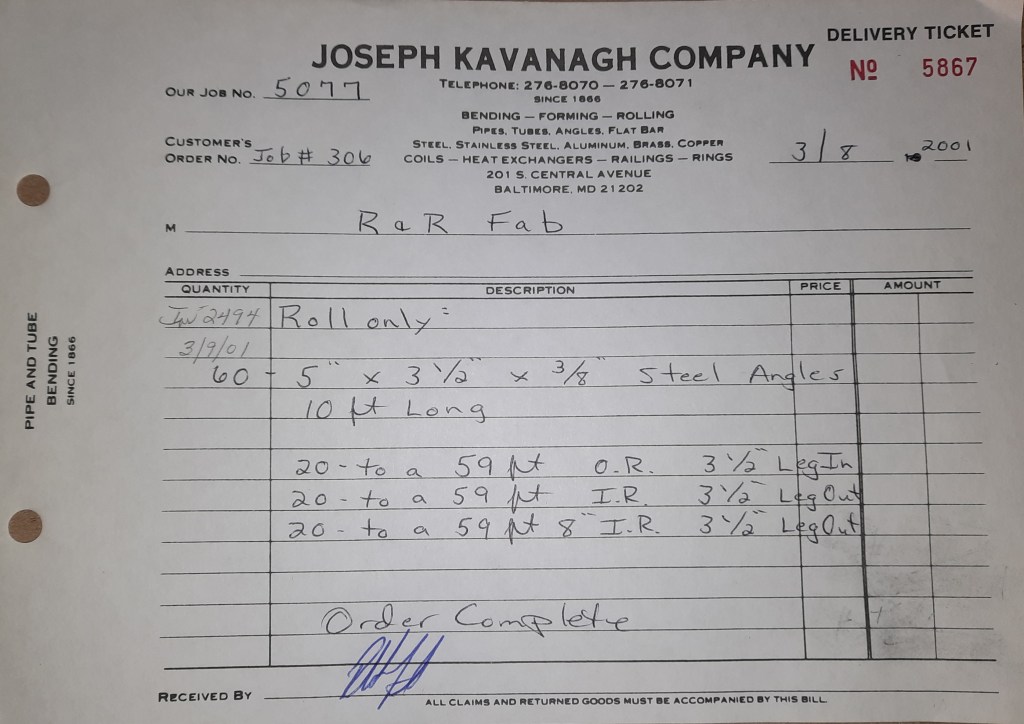 DELIVERY TICKET
JOSEPH KAVANAGH COMPANY
Nº 5867
TELEPHONE: 276-8070 — 276-8071
OUR JOB NO. 5077
SINCE 1866
BENDING — FORMING — ROLLING
PIPES, TUBES, ANGLES, FLAT BAR
CUSTOMER'S
ORDER NO. Job # 306
STEEL, STAINLESS STEEL, ALUMINUM, BRASS, COPPER
COILS — HEAT EXCHANGERS — RAILINGS — RINGS
3/8 2001
201 S. CENTRAL AVENUE
BALTIMORE, MD 21202
M R & R Fab
ADDRESS
QUANTITY DESCRIPTION PRICE AMOUNT
Inv 2494 Roll only:
3/9/01
60 - 5" x 3 1/2" x 3/8" Steel Angles
10 ft Long
20 - to a 59 ft O.R. 3 1/2" Leg In
20 - to a 59 ft I.R. 3 1/2" Leg Out
20 - to a 59 ft 8" I.R. 3 1/2" Leg Out
Order Complete
RECEIVED BY
ALL CLAIMS AND RETURNED GOODS MUST BE ACCOMPANIED BY THIS BILL
PIPE AND TUBE
BENDING
SINCE 1866